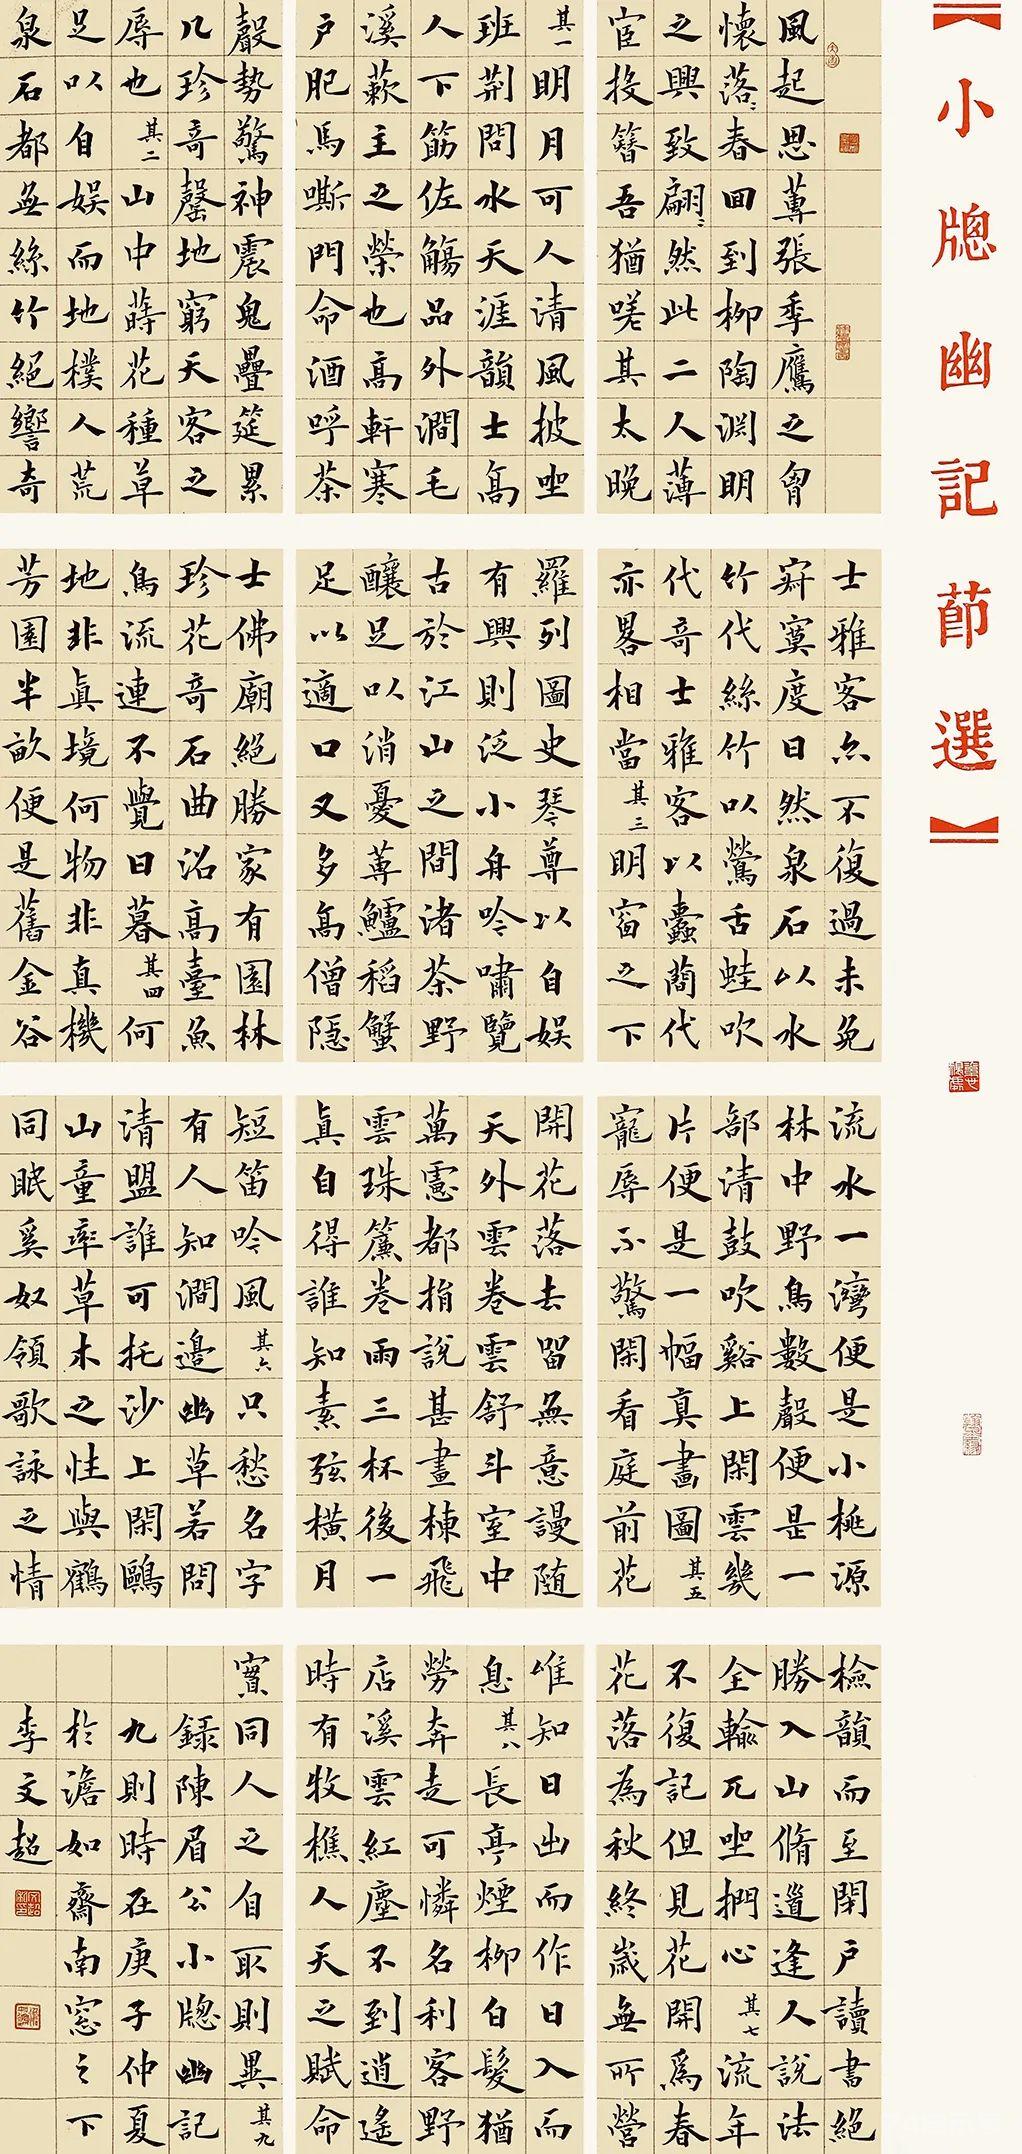 【小牕幽記節選】
風起思蓴張季鷹之胷
懷落〻春回到柳陶渊明
之興致翩〻然此二人薄
宦投簪吾猶嗟其太晚
其一明月可人清風披坐
班荆問水天涯韻士高
人下筯佐觴品外澗毛
溪蔌主之榮也高軒寒
戶肥馬嘶門命酒呼茶
聲勢驚神震鬼疊筵累
几珍奇罄地窮天客之
辱也其二山中蒔花種草
足以自娛而地樸人荒
泉石都無絲竹絕響奇
士雅客亦不復過未免
寂寞度日然泉石以水
竹代絲竹以鶯舌蛙吹
代奇士雅客以蠹蕳代
亦畧相當其三明窗之下
羅列圖史琴尊以自娛
有興則泛小舟吟嘯覽
古於江山之間渚茶野
釀足以消憂蓴鱸稻蟹
足以適口又多高僧隱
士佛廟絕勝家有園林
珍花奇石曲沼高臺魚
鳥流連不覺日暮其四何
地非真境何物非真機
芳園半畝便是舊金谷
流水一灣便是小桃源
林中野鳥數聲便是一
部清鼓吹谿上閑雲幾
片便是一幅真畫圖其五
寵辱不驚閑看庭前花
開花落去留無意謾随
天外雲卷雲舒斗室中
萬慮都捐說甚畫棟飛
雲珠簾卷雨三杯後一
真自得誰知素弦橫月
短笛吟風其六只愁名字
有人知澗邊幽草若問
清盟誰可托沙上閑鷗
山童率草木之性與鶴
同眠奚奴領歌詠之情
檢韻而至閉戶讀書絕
勝入山脩道逢人說法
全輸兀坐捫心其七流年
不復記但見花開為春
花落為秋終歲無所營
唯知日出而作日入而
息其八長亭煙柳白髮猶
勞奔走可憐名利客野
店溪雲紅塵不到逍遙
時有牧樵人天之賦命
實同人之自取則異其九
錄陳眉公小牕幽記
九則時在庚子仲夏
於澹如齋南窓之下
李文超